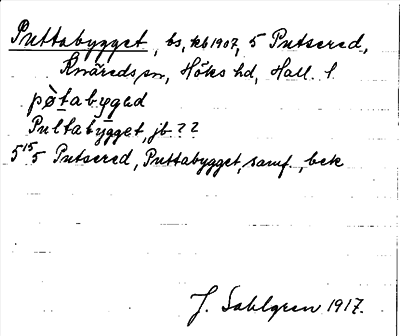 Puttabygget, bs, kb 1907, 5 Putsered,
Knäreds sn, Höks hd, Hall. l.
pø̀tabyged
Pultabygget, jb ??
5 15 5 Putsered, Puttabygget, samf., bek
J. Sahlgren 1917.